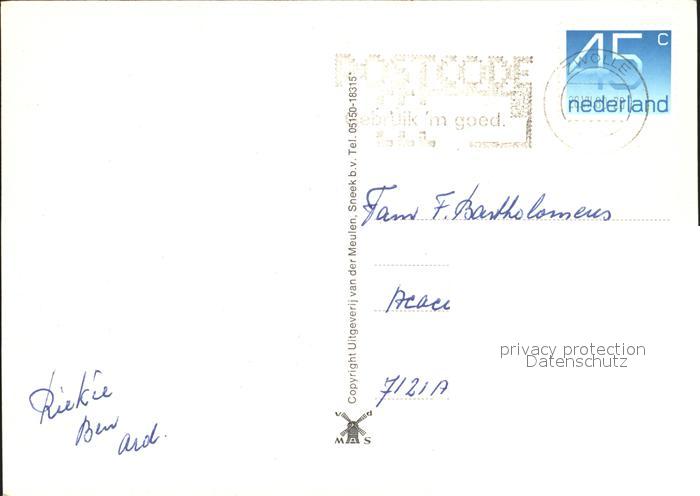 45 c
nederland
ZWOLLE
POSTCODE
Gebruik 'm goed.
Copyright Uitgeverij van der Meulen, Sneek b.v. Tel. 05150-18315*
Fam F. Bartholomeus
Acaci
7121A
privacy protection
Datenschutz
Riekie
Ben
Ard.
v d
M S